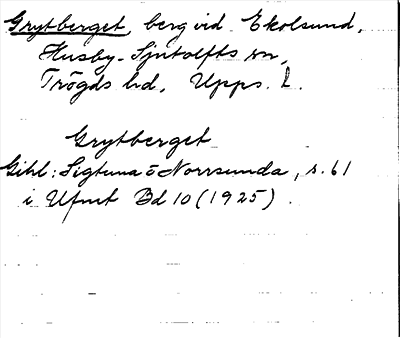 Grytberget, berg vid Ekolsund,
Husby-Sjutolfts sn,
Trögds hd, Upps. L.
Grytberget
Gihl: Sigtuna o Norrsunda, s. 61
i Ufmt Bd 10 (1925).